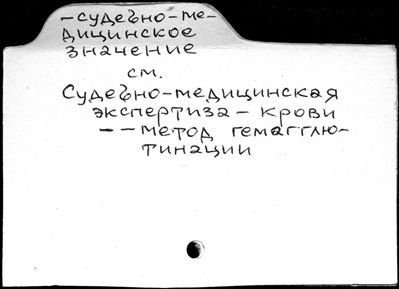 -судебно-ме-
дицинское
значение
см.
Судебно-медицинская
экспертиза - крови
- - метод гемагглю-
тинации